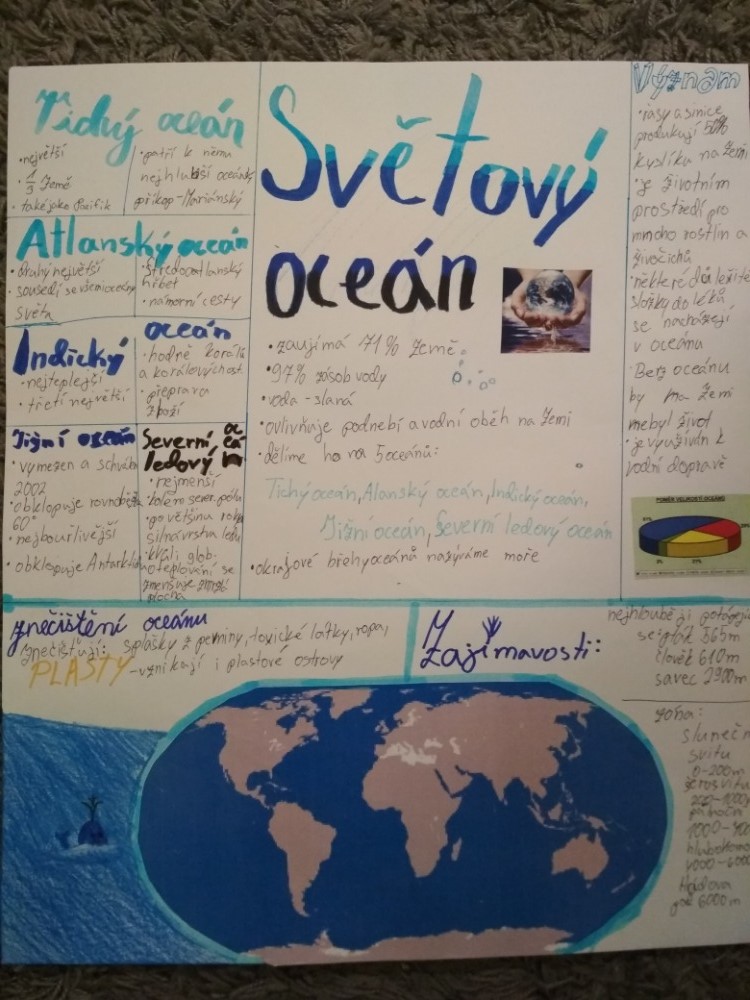 Tichý oceán
• největší
• 1/3 Země
• také jako Pacifik
• patří k němu
nejhlubší oceánský
příkop - Mariánský
Atlanský oceán
• druhý největší
• sousedí se všemi oceány
světa
• středoatlanský
hřbet
• námořní cesty
Indický oceán
• nejteplejší
• třetí největší
• hodně korálů
a korálových ost.
• přeprava
zboží
Jižní oceán
• vymezen a schválen
2002
• obklopuje rovnoběžka
60°
• nejbouřlivější
• obklopuje Antarktidu
Severní
ledový
oceán
• nejmenší
• kolem sever. pólu
• po většinu roku
silná vrsta ledu
• kvůli glob.
oteplování se
zmenšuje
plocha
Světový
oceán
• zaujímá 71% Země
• 97% zásob vody
• voda - slaná
• ovlivňuje podnebí a vodní oběh na Zemi
• dělíme ho na 5 oceánů:
Tichý oceán, Alanský oceán, Indický oceán,
Jižní oceán, Severní ledový oceán
• okrajové břehy oceánů nazýváme moře
Význam
• řasy a sinice
produkují 50%
kyslíku na Zemi
• je životním
prostředí pro
mnoho rostlin a
živočichů
• některé důležité
složky do léků
se nacházejí
v oceánu
• Bez oceánu
by na Zemi
nebyl život
• je využíván k
vodní dopravě
POMĚR VELIKOSTI OCEÁNŮ
znečištění oceánu
znečišťují: splašky z pevniny, toxické látky, ropa,
PLASTY - vznikají i plastové ostrovy
Zajímavosti:
nejhlouběji
se: pták 565m
člověk 610m
savec 2900m
zóna:
sluneční
svitu
0-200m
šerosvitu
200-1000m
půlnoční
1000-
4000-6000
Hádova
od 6000m